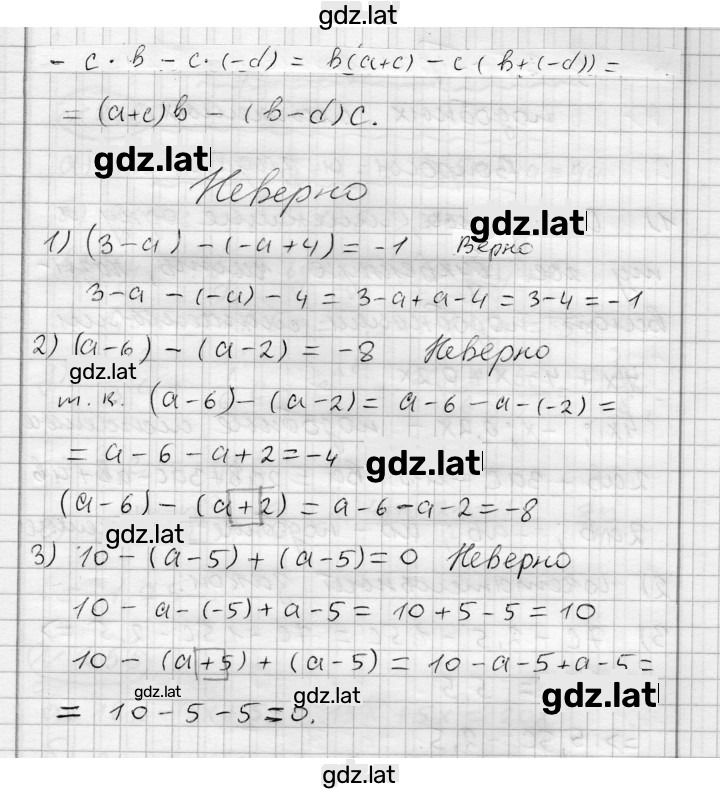 gdz.lat
- c · b - c · (-d) = b(a+c) - c (b+(-d)) =
= (a+c)b - (b-d)c.
gdz.lat
Неверно
gdz.lat
1) (3-a) - (-a+4) = -1 Верно
3-a - (-a) - 4 = 3-a+a-4 = 3-4 = -1
2) (a-6) - (a-2) = -8 Неверно
gdz.lat
т.к. (a-6) - (a-2) = a-6-a-(-2) =
= a-6-a+2 = -4
gdz.lat
(a-6) - (a+2) = a-6-a-2 = -8
gdz.lat
3) 10 - (a-5) + (a-5) = 0 Неверно
10 - a - (-5) + a - 5 = 10+5-5 = 10
10 - (a+5) + (a-5) = 10-a-5+a-5 =
gdz.lat
gdz.lat
gdz.lat
= 10-5-5 = 0.
gdz.lat